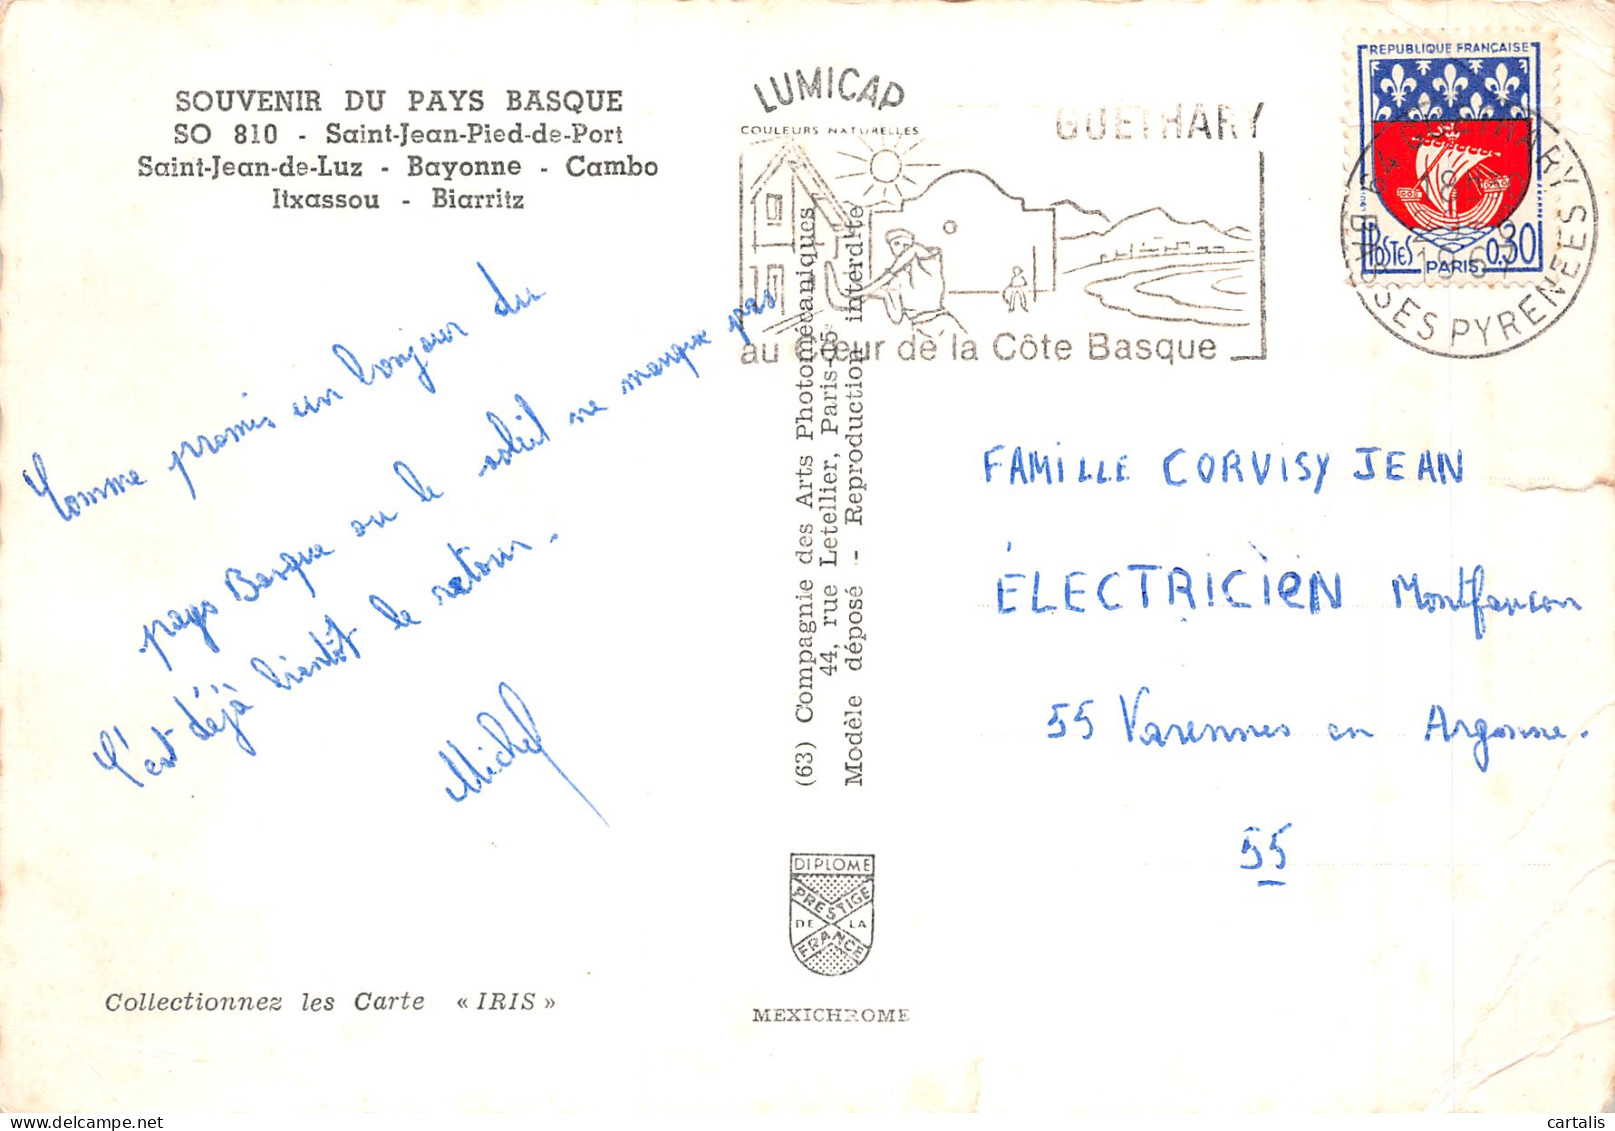 SOUVENIR DU PAYS BASQUE
SO 810 - Saint-Jean-Pied-de-Port
Saint-Jean-de-Luz - Bayonne - Cambo
Itxassou - Biarritz
Comme promis un bonjour du
pays Basque ou le soleil ne manque pas
C'est déjà bientôt le retour.
Michel
Collectionnez les Carte « IRIS »
LUMICAP
COULEURS NATURELLES
GUETHARY
au Cœur de la Côte Basque
(63) Compagnie des Arts Photomécaniques
44, rue Letellier, Paris-15e
Modèle déposé - Reproduction interdite
DIPLOME
PRESTIGE
DE LA
FRANCE
MEXICHROME
REPUBLIQUE FRANÇAISE
POSTES 0,30
PARIS
64 GUETHARY
18H
BASSES PYRENEES
FAMILLE CORVISY JEAN
ÉLECTRICIEN Montfaucon
55 Varennes en Argonne.
55
cartalis